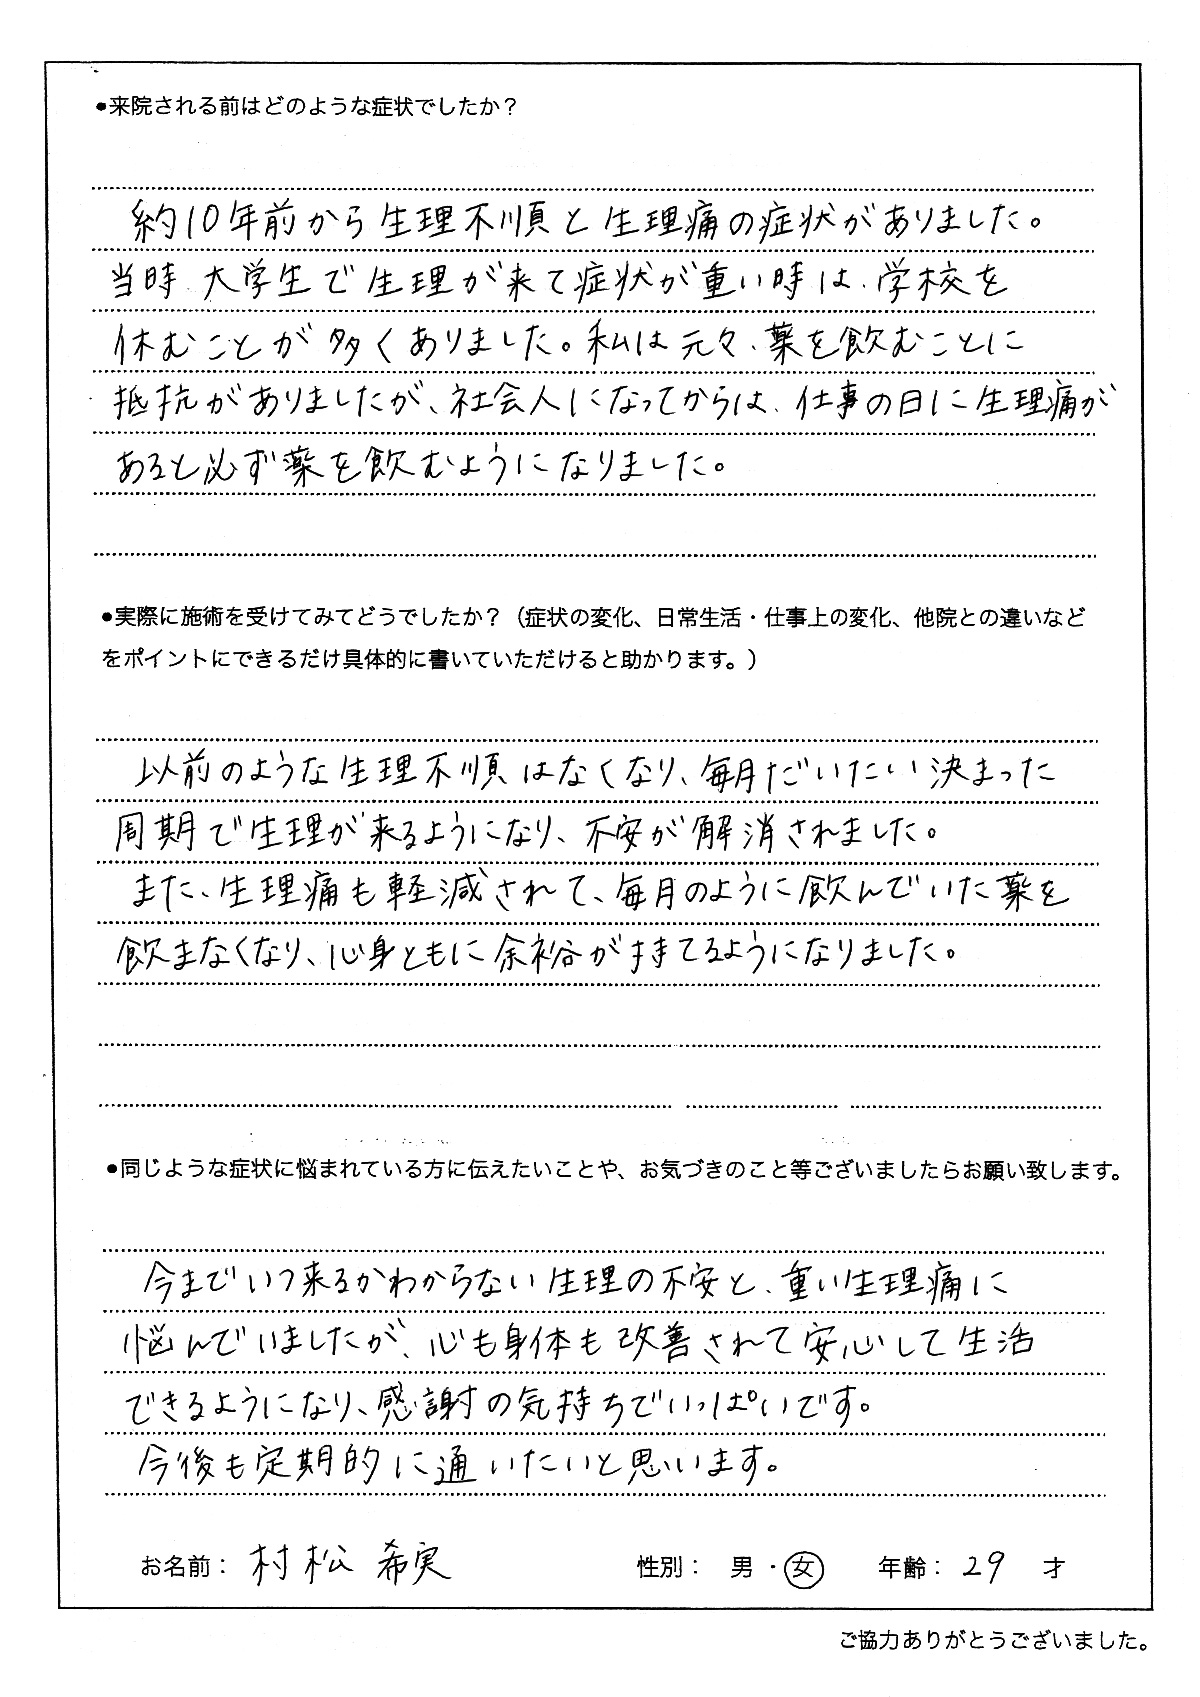 ●来院される前はどのような症状でしたか？
約10年前から生理不順と生理痛の症状がありました。
当時、大学生で生理が来て症状が重い時は、学校を
休むことが多くありました。私は元々、薬を飲むことに
抵抗がありましたが、社会人になってからは、仕事の日に生理痛が
あると必ず薬を飲むようになりました。
●実際に施術を受けてみてどうでしたか？（症状の変化、日常生活・仕事上の変化、他院との違いなど
をポイントにできるだけ具体的に書いていただけると助かります。）
以前のような生理不順はなくなり、毎月だいたい決まった
周期で生理が来るようになり、不安が解消されました。
また、生理痛も軽減されて、毎月のように飲んでいた薬を
飲まなくなり、心身ともに余裕が持てるようになりました。
●同じような症状に悩まれている方に伝えたいことや、お気づきのこと等ございましたらお願い致します。
今までいつ来るかわからない生理の不安と、重い生理痛に
悩んでいましたが、心も身体も改善されて安心して生活
できるようになり、感謝の気持ちでいっぱいです。
今後も定期的に通いたいと思います。
お名前：村松 希実 性別： 男・女 年齢：29 才
ご協力ありがとうございました。